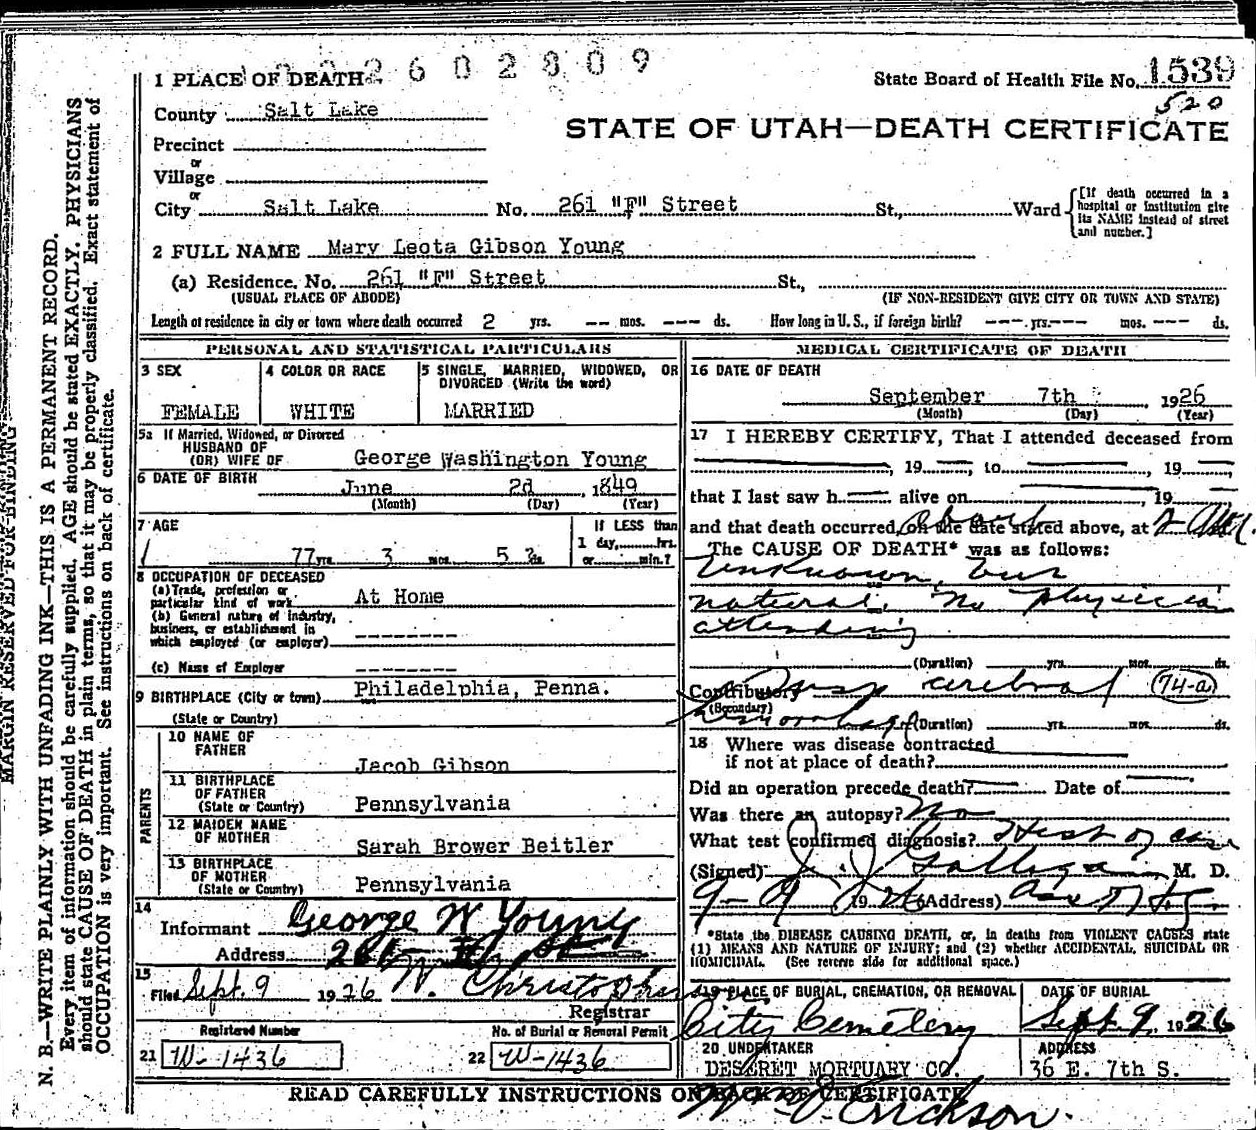 2602809
1 PLACE OF DEATH
State Board of Health File No. 1539
520
County Salt Lake
STATE OF UTAH—DEATH CERTIFICATE
Precinct
or
Village
or
City Salt Lake No. 261 "F" Street St., Ward
[If death occurred in a hospital or institution give its NAME instead of street and number.]
2 FULL NAME Mary Leota Gibson Young
(a) Residence. No. 261 "F" Street St.,
(USUAL PLACE OF ABODE) (IF NON-RESIDENT GIVE CITY OR TOWN AND STATE)
Length of residence in city or town where death occurred 2 yrs. -- mos. --- ds. How long in U. S., if foreign birth? --- yrs. --- mos. --- ds.
PERSONAL AND STATISTICAL PARTICULARS
3 SEX
FEMALE
4 COLOR OR RACE
WHITE
5 SINGLE, MARRIED, WIDOWED, OR DIVORCED (Write the word)
MARRIED
5a If Married, Widowed, or Divorced
HUSBAND OF
(OR) WIFE OF George Washington Young
6 DATE OF BIRTH June 2d, 1849
(Month) (Day) (Year)
7 AGE
77 yrs. 3 mos. 5 ds.
If LESS than
1 day, hrs.
or min.?
8 OCCUPATION OF DECEASED
(a) Trade, profession or
particular kind of work At Home
(b) General nature of industry,
business, or establishment in
which employed (or employer) --------
(c) Name of Employer --------
9 BIRTHPLACE (City or town) Philadelphia, Penna.
(State or Country)
PARENTS
10 NAME OF
FATHER Jacob Gibson
11 BIRTHPLACE
OF FATHER
(State or Country) Pennsylvania
12 MAIDEN NAME
OF MOTHER Sarah Brower Beitler
13 BIRTHPLACE
OF MOTHER
(State or Country) Pennsylvania
14
Informant George W Young
Address 261 F St
15
Filed Sept. 9 1926 W. Christopherson
Registrar
Registered Number
21 W-1436
No. of Burial or Removal Permit
22 W-1436
MEDICAL CERTIFICATE OF DEATH
16 DATE OF DEATH
September 7th, 1926
(Month) (Day) (Year)
17 I HEREBY CERTIFY, That I attended deceased from
, 19 , to , 19
that I last saw h alive on , 19
and that death occurred, on the date stated above, at about 2 AM.
The CAUSE OF DEATH* was as follows:
Unknown, but
natural. No physician
attending
(Duration) yrs. mos. ds.
Contributory cerebral 74-a
(Secondary)
hemorrhage (Duration) yrs. mos. ds.
18 Where was disease contracted
if not at place of death?
Did an operation precede death? Date of
Was there an autopsy? No
What test confirmed diagnosis? Hist of case
(Signed) J. J. Galligan M. D.
9-9 1926 (Address)
*State the DISEASE CAUSING DEATH, or, in deaths from VIOLENT CAUSES state
(1) MEANS AND NATURE OF INJURY; and (2) whether ACCIDENTAL, SUICIDAL OR
HOMICIDAL. (See reverse side for additional space.)
19 PLACE OF BURIAL, CREMATION, OR REMOVAL
City Cemetery
DATE OF BURIAL
Sept 9, 1926
20 UNDERTAKER
DESERET MORTUARY CO.
ADDRESS
36 E. 7th S.
READ CAREFULLY INSTRUCTIONS ON BACK OF CERTIFICATE
Erickson.
MARGIN RESERVED FOR BINDING
N. B.—WRITE PLAINLY WITH UNFADING INK—THIS IS A PERMANENT RECORD.
Every item of information should be carefully supplied. AGE should be stated EXACTLY. PHYSICIANS
should state CAUSE OF DEATH in plain terms, so that it may be properly classified. Exact statement of
OCCUPATION is very important. See instructions on back of certificate.